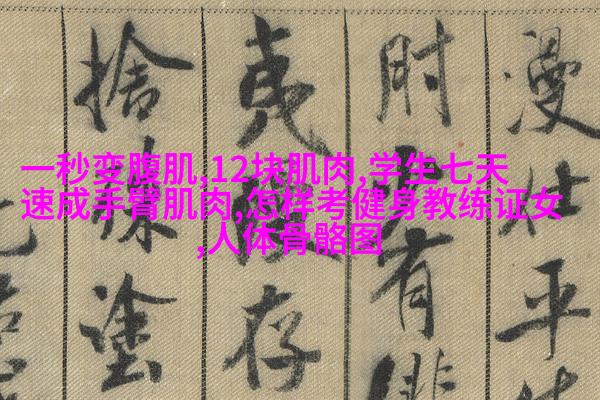 一秒变腹肌,12块肌肉,学生七天
速成手臂肌肉,怎样考健身教练证女
,人体骨骼图
漫仕平
时有
夷存
捨塗